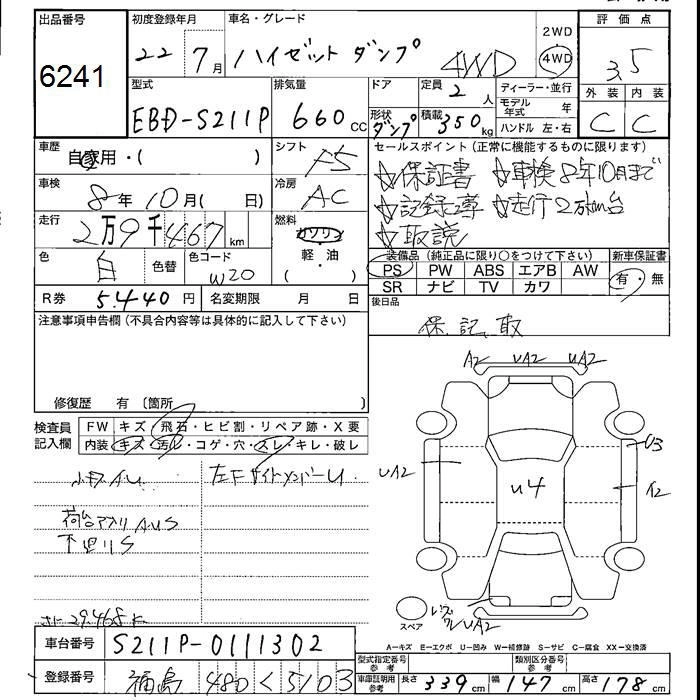 出品番号
6241
初度登録年月
22年 7月
車名・グレード
ハイゼット ダンプ 4WD
2WD
4WD
評価点
3.5
外装 内装
C C
型式
EBD-S211P
排気量
660 CC
ドア
形状 ダンプ
定員 2 人
積載 350 kg
ディーラー・並行
モデル年式 年
ハンドル 左・右
車歴
自家用・( )
シフト
F5
セールスポイント (正常に機能するものに限ります)
☆保証書 ☆車検8年10月まで
☆記録簿 ☆走行2万km台
☆取説
車検
8年 10月( 日)
冷房
AC
走行
2万9千467 km
燃料
ガソリン
軽・油
( )
色
白
色替
色コード
W20
装備品 (純正品に限り○をつけて下さい)
PS PW ABS エアB AW
SR ナビ TV カワ
新車保証書
有・無
R券 5.440円
名変期限 月 日
後日品
保、記、取
注意事項申告欄 (不具合内容等は具体的に記入して下さい)
修復歴 有 〔箇所 〕
検査員記入欄
FW キズ・飛石・ヒビ割・リペア跡・X要
内装 キズ・汚レ・コゲ・穴・スレ・キレ・破レ
小キズAU
左Fサイドメンバー U
荷台アオリ AUS
下廻りS
A2 UA2 UA2
UA2
U4
U3
A2
UA2
スペア
A-キズ E-エクボ U-凹み W-補修跡 S-サビ C-腐食 XX-交換済
車台番号
S211P-0111302
登録番号
福島 480 く 5103
型式指定番号
参考
類別区分番号
参考
車庫証明用
参考
長さ 339 cm
幅 147 cm
高さ 178 cm